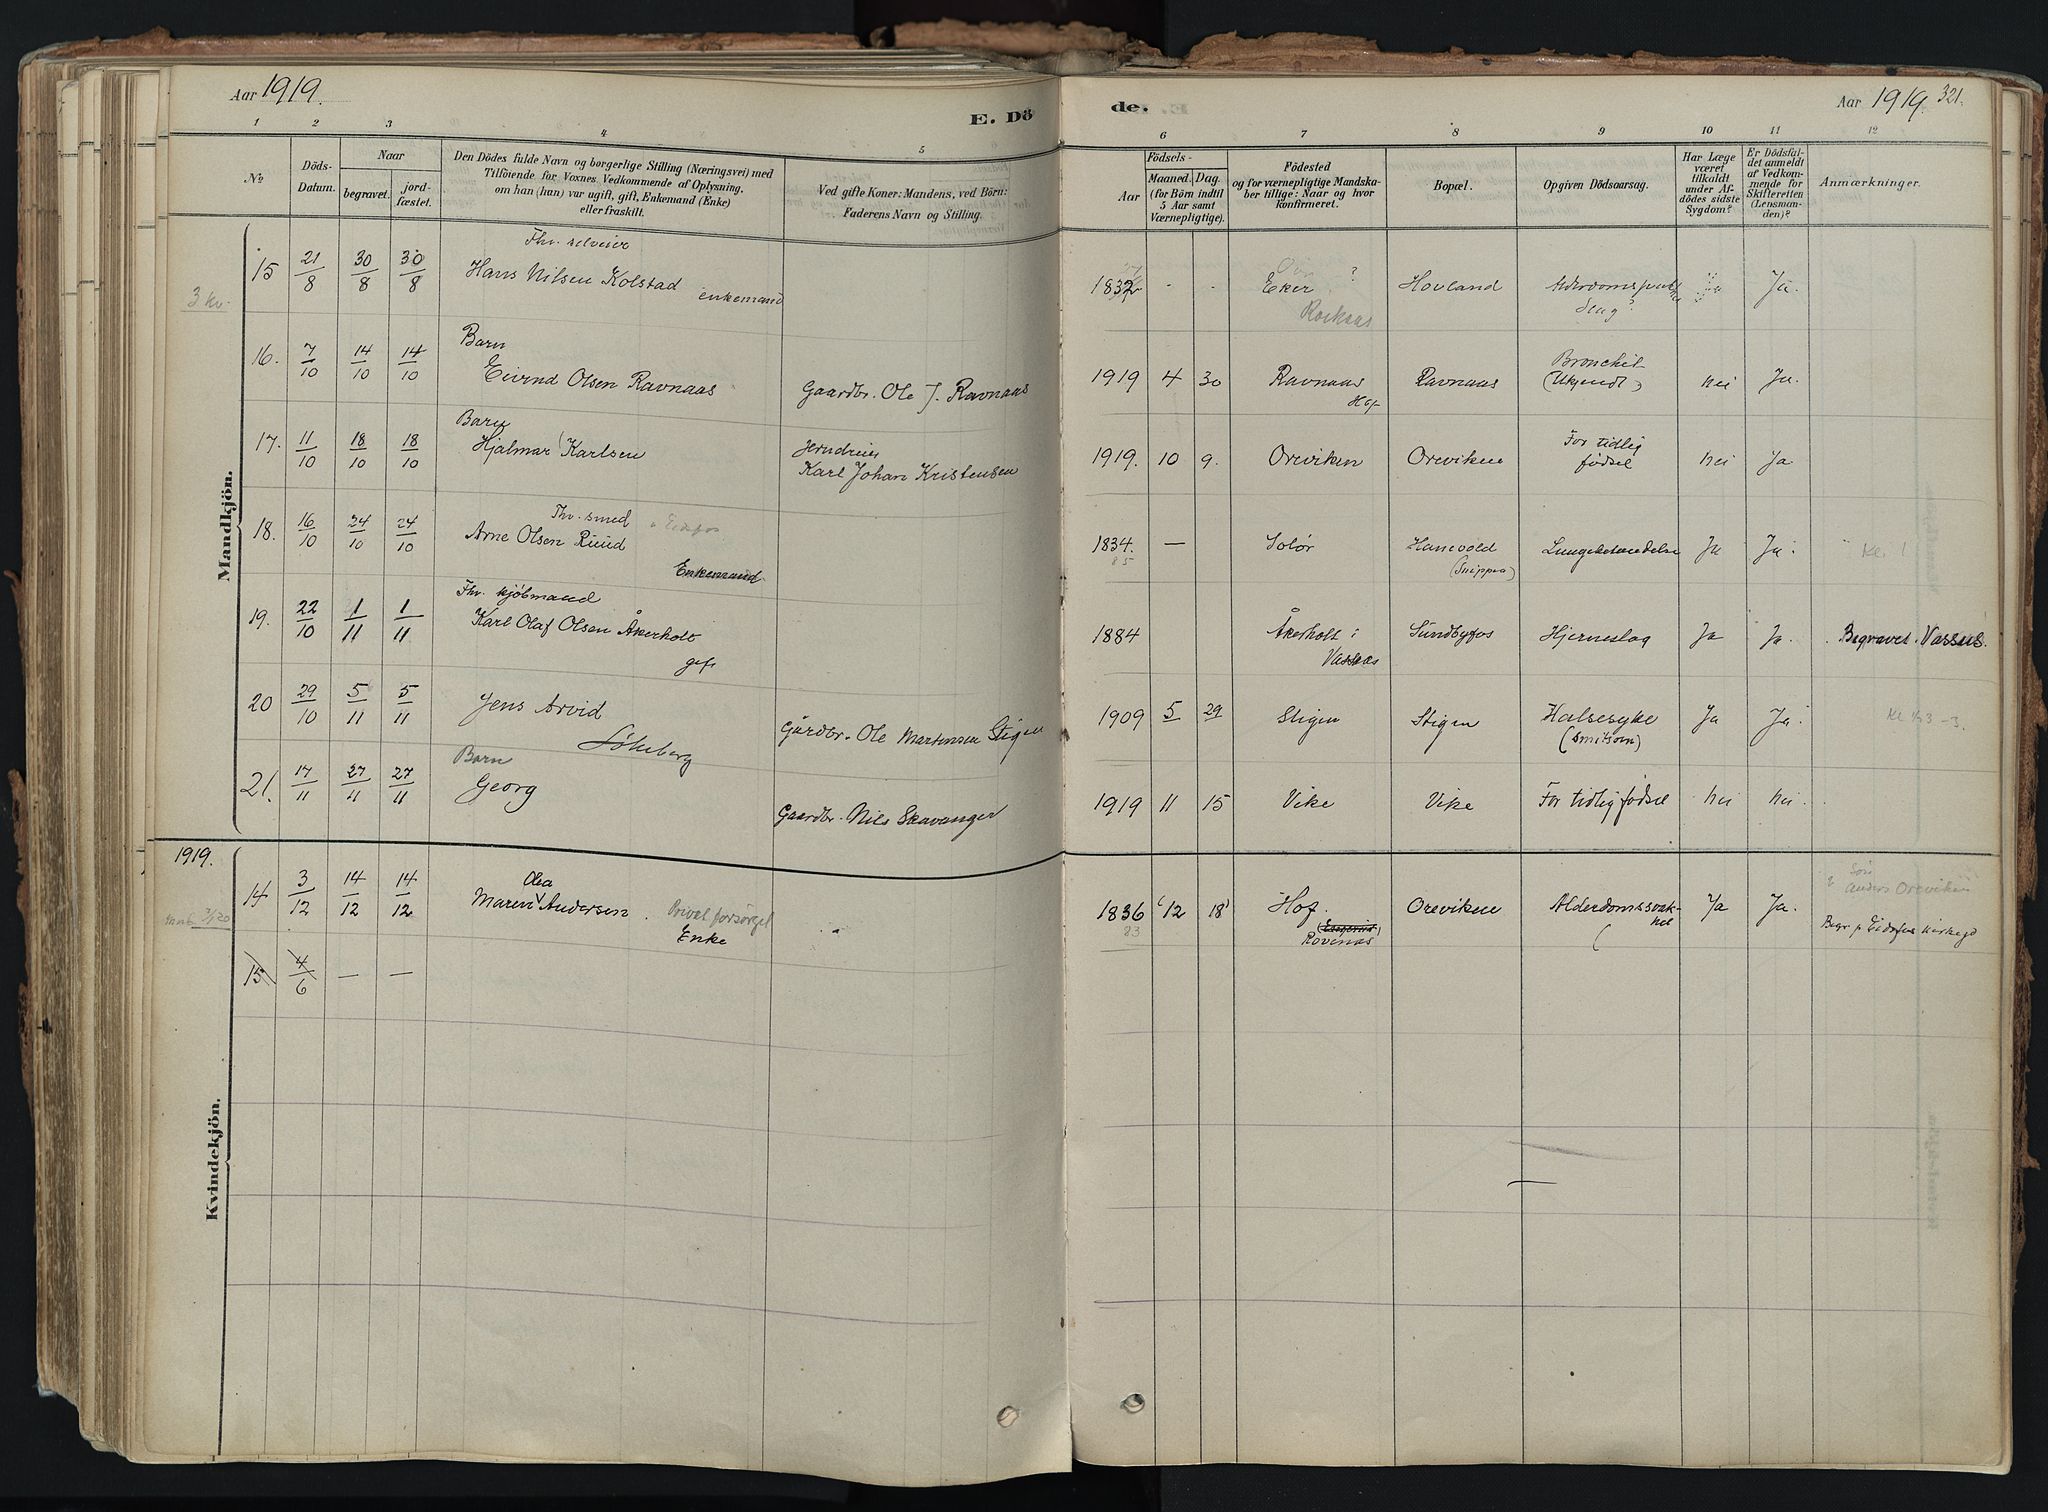 Aar 1919.
E. Dö
de.
Aar 1919. 321.
1 2 3 4 5
6 7 8 9 10 11 12
№
Döds-
Datum.
Naar
begravet.
jord-
fæstet.
Den Dödes fulde Navn og borgerlige Stilling (Næringsvei) med
Tilföiende for Voxnes Vedkommende af Oplysning,
om han (hun) var ugift, gift, Enkemand (Enke)
eller fraskilt.
Ved gifte Koner: Mandens, ved Börn:
Faderens Navn og Stilling.
Födsels-
Aar
Maaned. Dag.
(for Börn indtil
5 Aar samt
Værnepligtige).
Födested
og for værnepligtige Mandska-
ber tillige: Naar og hvor
konfirmeret.
Bopæl.
Opgiven Dödsaarsag.
Har Læge
været
tilkaldt
under Af-
dödes sidste
Sygdom?
Er Dödsfal-
det anmeldt
af Vedkom-
mende for
Skifteretten
(Lensman-
den)?
Anmærkninger.
Mandkjön.
3 kv.
15 21/8 30/8 30/8
Fhv. selveier
Hans Nilsen Kolstad
enkemand
1832 - - Eker ? Hovland
Ja.
16. 7/10 14/10 14/10
Barn
Eivind Olsen Ravnaas
Gaardbr. Ole J. Ravnaas
1919 4 30 Ravnaas
Hof
Ravnaas
Bronchit
(Ukjendt)
nei Ja.
17. 11/10 18/10 18/10
Barn
Hjalmar Karlsen
Karl Johan Kristensen
1919. 10 9. Oreviken Oreviken
For tidlig
födsel
nei Ja
18. 16/10 24/10 24/10
Fhv. smed
Arne Olsen Ruud
Enkemand
1834. —
85
Solör Hanevold
Lungebetændelse Ja Ja.
19. 22/10 1/11 1/11
Fhv. kjöbmand
Karl Olaf Olsen Åkerholt
gift
1884 Åkerholt i
Vassaas
Sundbyfos Hjerneslag Ja Ja. Begravet Vassaas.
20 29/10 5/11 5/11
Jens Arvid
Gårdbr. Ole Martensen Stigen
1909 5 29 Stigen Stigen Halsesyke
(Smitsom)
Ja Ja.
21. 17/11 27/11 27/11
Barn
Georg
Gaardbr. Nils Skavanger
1919 11 15 Vike Vike For tidlig födsel nei nei.
Kvindekjön.
1919.
14 3/12 14/12 14/12
Olea
Maren Andersen. Privat forsörget
Enke
1836 (12 18)
83
Hof.
Oreviken Alderdomssvak-
het
Ja Ja.
Sön
Anders Oreviken
Begr. p Eidsfos kirkegd
15 4/6 — —